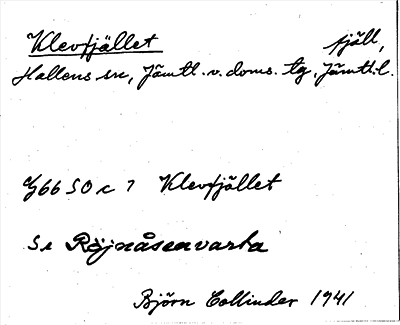 Klevfjället fjäll,
Hallens sn, Jämtl. v. doms. tg, Jämtl. l.
Klevfjället
Se Röjnåsenvarta
Björn Collinder 1941